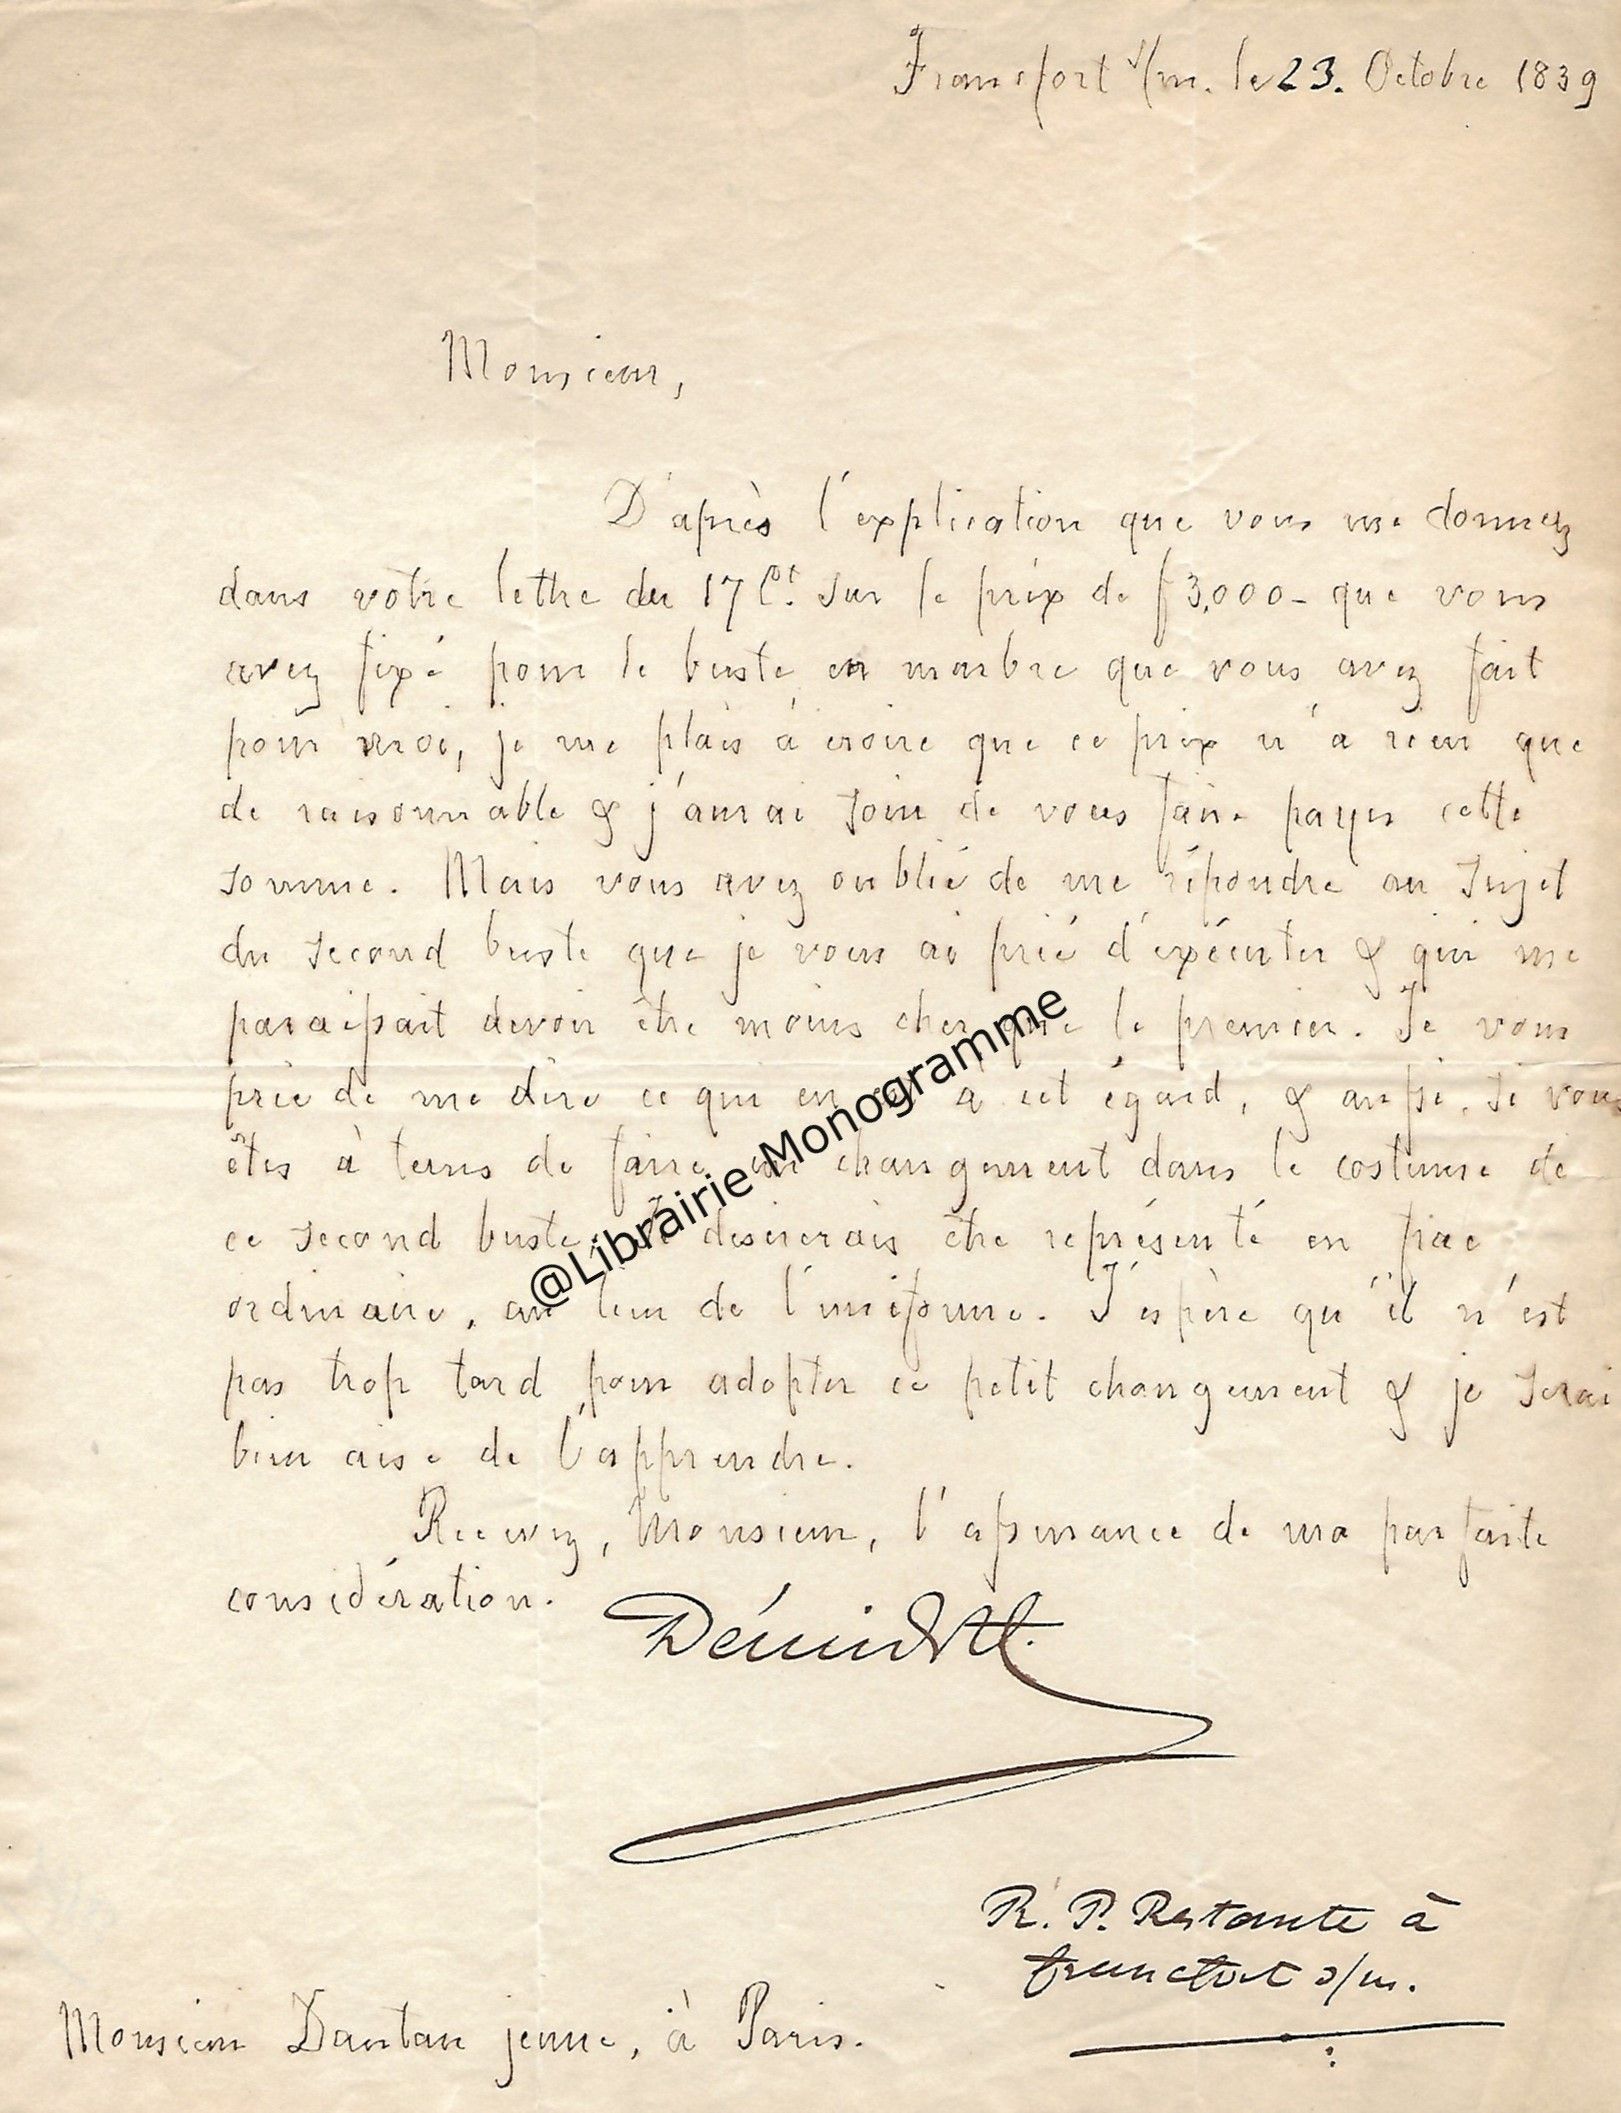 Francfort s/m. le 23. Octobre 1839
Monsieur,
D'après l'explication que vous me donnez
dans votre lettre du 17 Ct. sur le prix de f 3,000 - que vous
avez fixé pour le buste en marbre que vous avez fait
pour moi, je me plais à croire que ce prix n'a rien que
de raisonnable & j'aurai soin de vous faire payer cette
somme. Mais vous avez oublié de me répondre au sujet
du second buste que je vous ai prié d'exécuter & qui me
paraissait devoir être moins cher que le premier. Je vous
prie de me dire ce qui en est à cet égard, & aussi, si vous
êtes à tems de faire un changement dans le costume de
ce second buste. Je desirerais être représenté en frac
ordinaire, au lieu de l'uniforme. J'espère qu'il n'est
pas trop tard pour adopter ce petit changement & je serai
bien aise de l'apprendre.
Recevez, Monsieur, l'assurance de ma parfaite
considération.
Démidoff.
R. P. Restante à
francfort s/m.
Monsieur Dantan jeune, à Paris.
@Librairie Monogramme